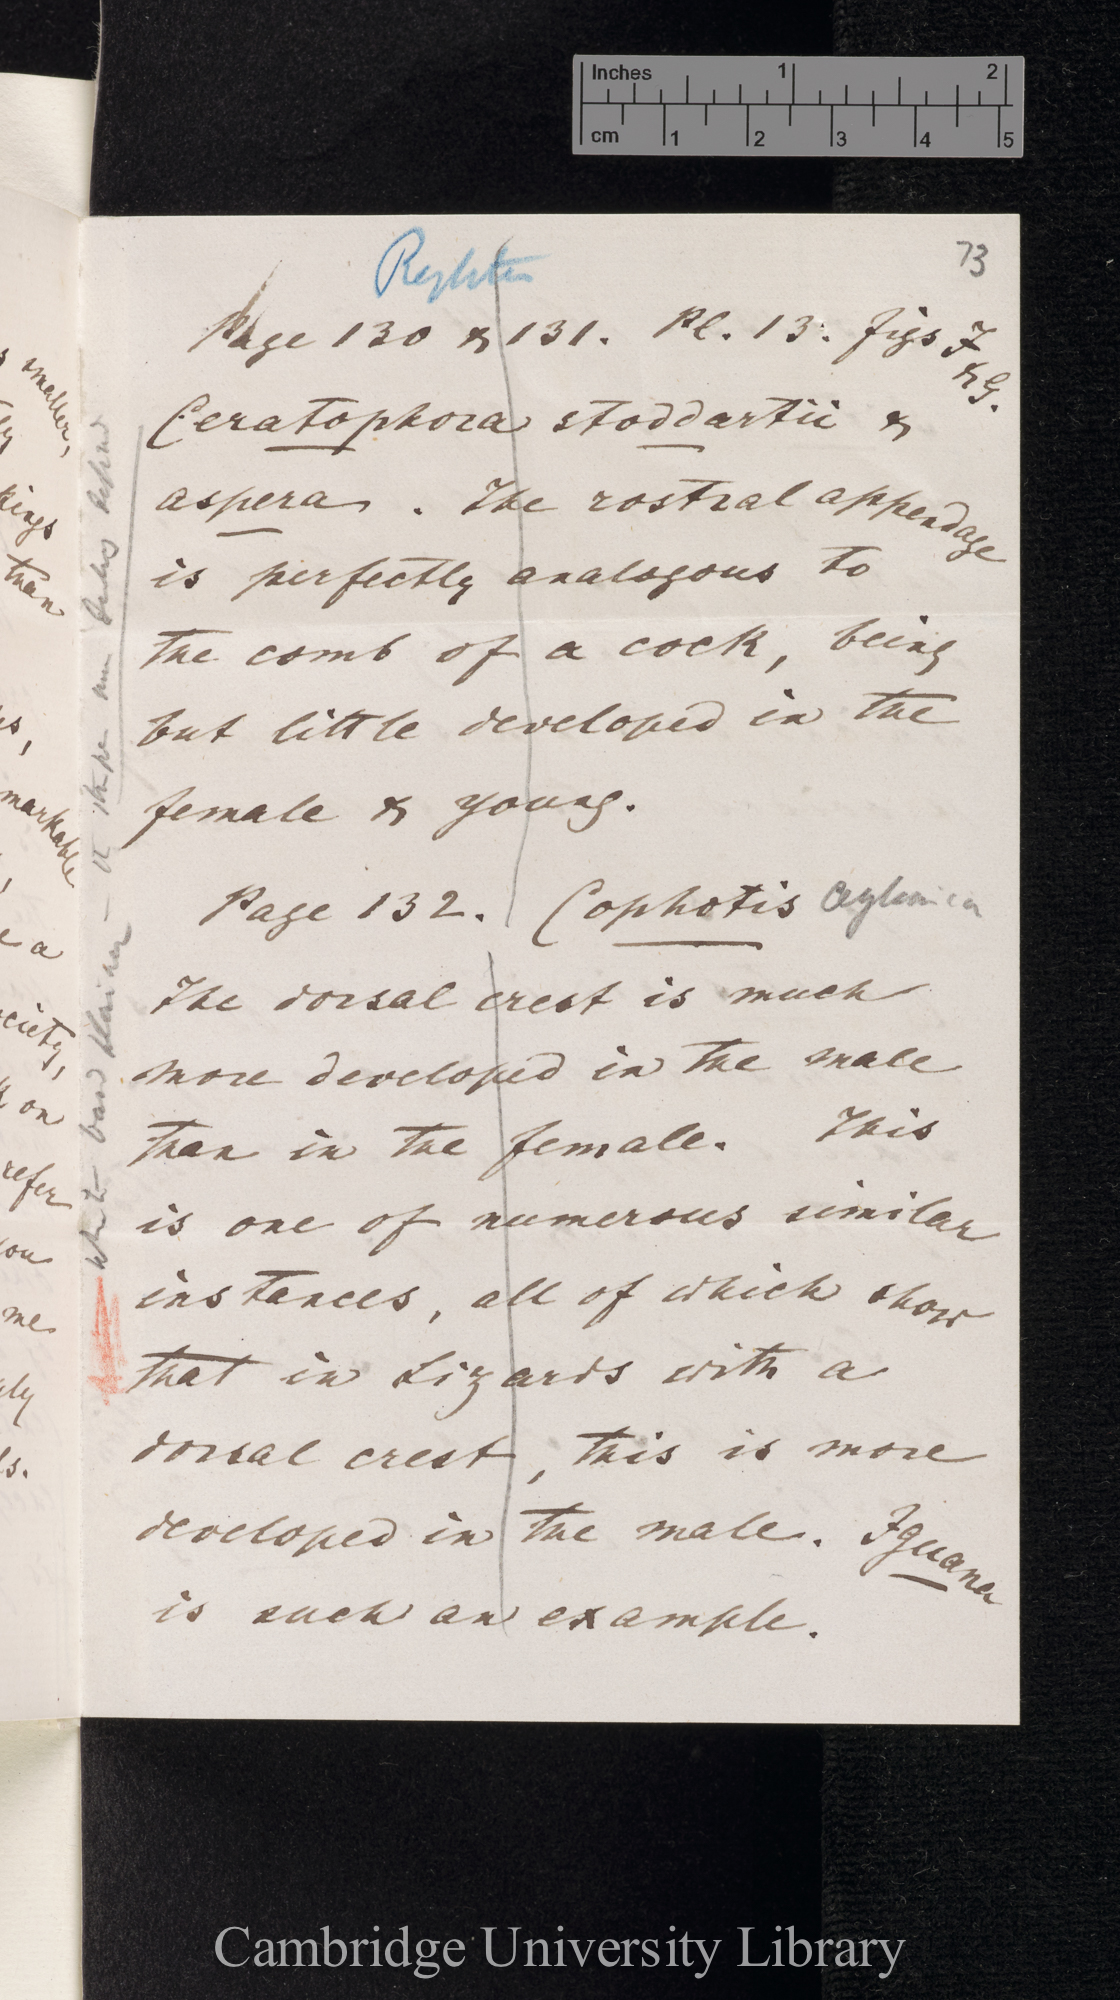 Inches 1 2
cm 1 2 3 4 5
73
Reptiles
Page 130 & 131. Pl. 13. figs F
& G.
Ceratophora stoddartii &
aspera. The rostral appendage
is perfectly analogous to
the comb of a cock, being
but little developed in the
female & young.
Page 132. Cophotis Ceylanica
The dorsal crest is much
more developed in the male
than in the female. This
is one of numerous similar
instances, all of which show
that in Lizards with a
dorsal crest, this is more
developed in the male. Iguana
is such an example.
smaller,
than
markable
e a
ciety,
on
refer
me
Cambridge University Library